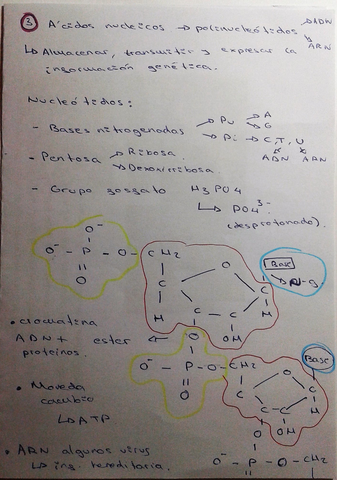 ③ Ácidos nucleicos → polinucleótidos → ADN
→ ARN
↳ Almacenar, transmitir y expresar la
información genética.
Nucleótidos:
- Bases nitrogenadas → Pu → A
→ G
→ Pi → C, T, U
ADN ARN
- Pentosa → Ribosa.
→ Desoxirribosa
- Grupo fosfato H3PO4
↳ PO4 3-
(desprotonado).
O-
O- - P - O - CH2
O
O
Base
C
C
H
H
C C
OH
• cromatina
ADN + ester
proteínos.
O
O- - P - O - CH2
O
Base
O
C
C
H
H
C C
OH
• Moneda
cambio
↳ ATP
• ARN algunos virus
↳ inf. hereditaria.
O
O- - P - O - CH2